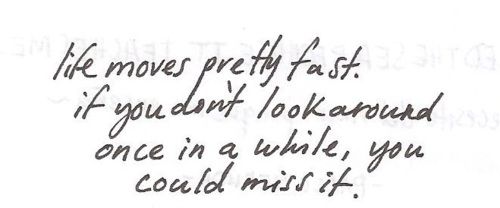 life moves pretty fast.
if you don't look around
once in a while, you
could miss it.